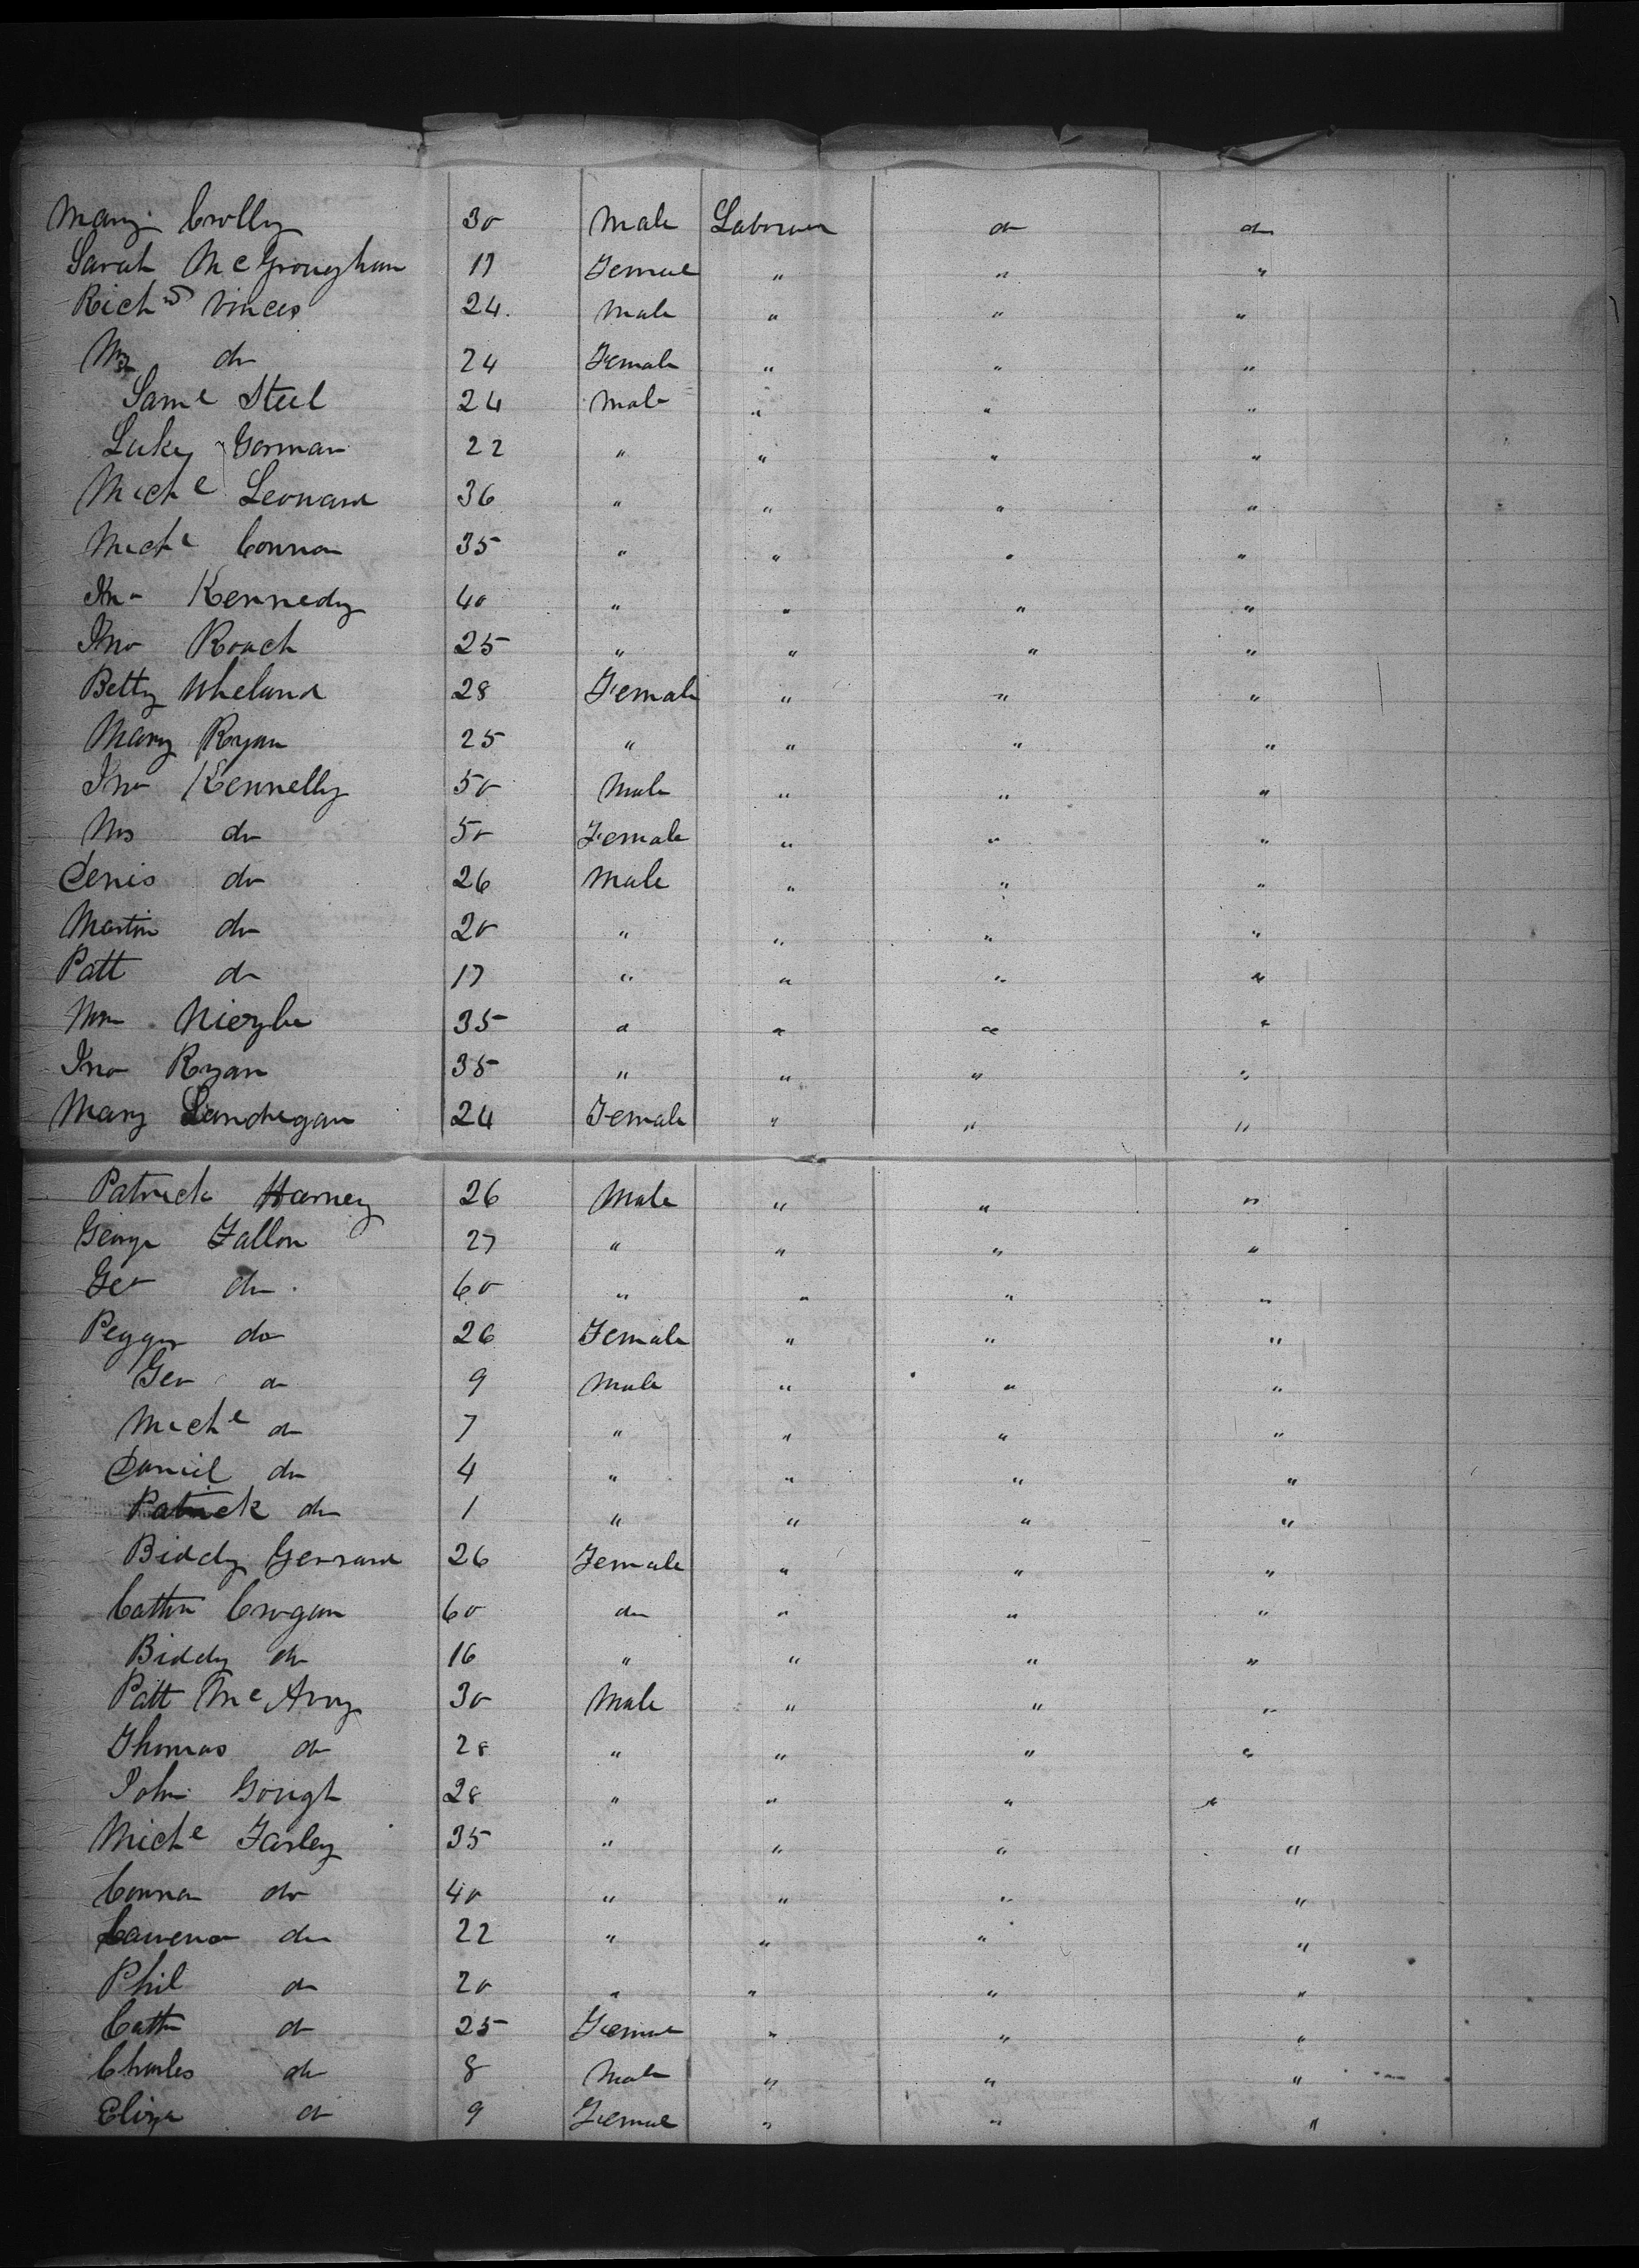 Mary Crolly 30 Male Laborer do do
Sarah McGroughan 17 Female " " "
Richd Vinces 24. Male " " "
Mrs do 24 Female " " "
Saml Steel 24 Male " " "
Luke Gorman 22 " " " "
Michl Leonard 36 " " " "
Michl Connor 35 " " " "
Jno Kennedy 40 " " " "
Jno Roach 25 " " " "
Betty Wheland 28 Female " " "
Mary Ryan 25 " " " "
Jno Kennelly 50 Male " " "
Mrs do 50 Female " " "
Denis do 26 Male " " "
Martin do 20 " " " "
Patt do 17 " " " "
Wm 35 " " " "
Jno Ryan 35 " " " "
Mary Landregan 24 Female " " "
Patrick Harney 26 Male " " "
George Fallon 27 " " " "
Geo do 60 " " " "
Peggy do 26 Female " " "
Geo do 9 Male " " "
Michl do 7 " " " "
Daniel do 4 " " " "
Patrick do 1 " " " "
Biddy Gerrard 26 Female " " "
Cathn Crogan 60 do " " "
Biddy do 16 " " " "
Patt McAvoy 30 Male " " "
Thomas do 28 " " " "
John Gough 28 " " " "
Michl Farley 35 " " " "
Connor do 40 " " " "
do 22 " " " "
Phil do 20 " " " "
Cathn do 25 Female " " "
Charles do 8 Male " " "
Eliza do 9 Female " " "